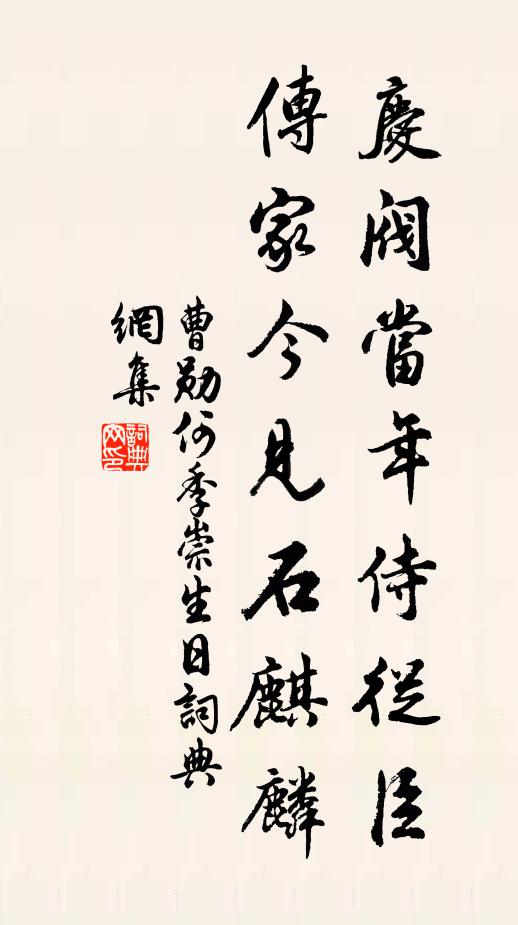 慶閥當年侍從臣
傳家今見石麒麟
曹勛何季崇生日詞典
網集
詞典網印